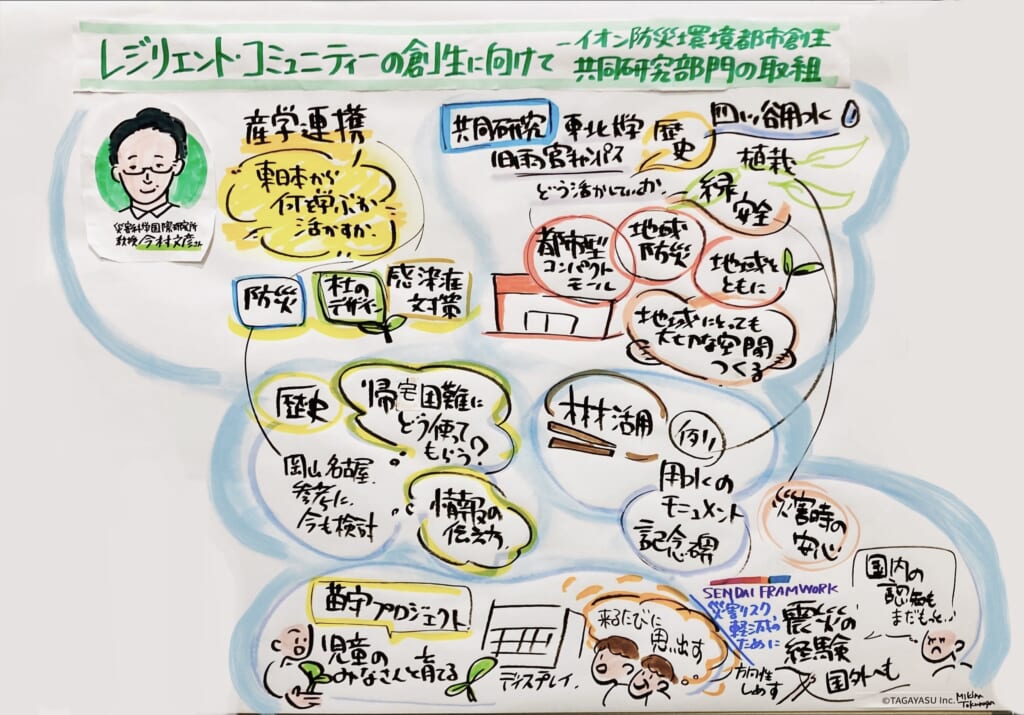 レジリエント・コミュニティーの創生に向けて
−イオン防災環境都市創生
共同研究部門の取組
災害科学国際研究所
教授 今村文彦さん
産学連携
東日本から
何を学ぶか
活かすか
防災
杜の
デザイン
感染症
対策
共同研究
東北大学
旧雨宮キャンパス
歴史
どう活かしていいか
四ツ谷用水
植栽
緑
安全
都市型
コンパクト
モール
地域
防災
地域と
ともに
地域にとっても
大切な空間
つくる
歴史
岡山名古屋
参考に、
今も検討
帰宅困難に
どう使って
もらう?
情報の
伝え方
木材活用
例)
用水の
モニュメント
記念碑
災害時の
安心
苗字プロジェクト
児童の
みなさんと育てる
ディスプレイ.
来るたびに
思い出す
SENDAI FRAMWORK
災害リスク
軽減の
ために
震災の
経験
方向性
しめす
国外へも
国内の
認知も
まだもっと..!
©TAGAYASU Inc.